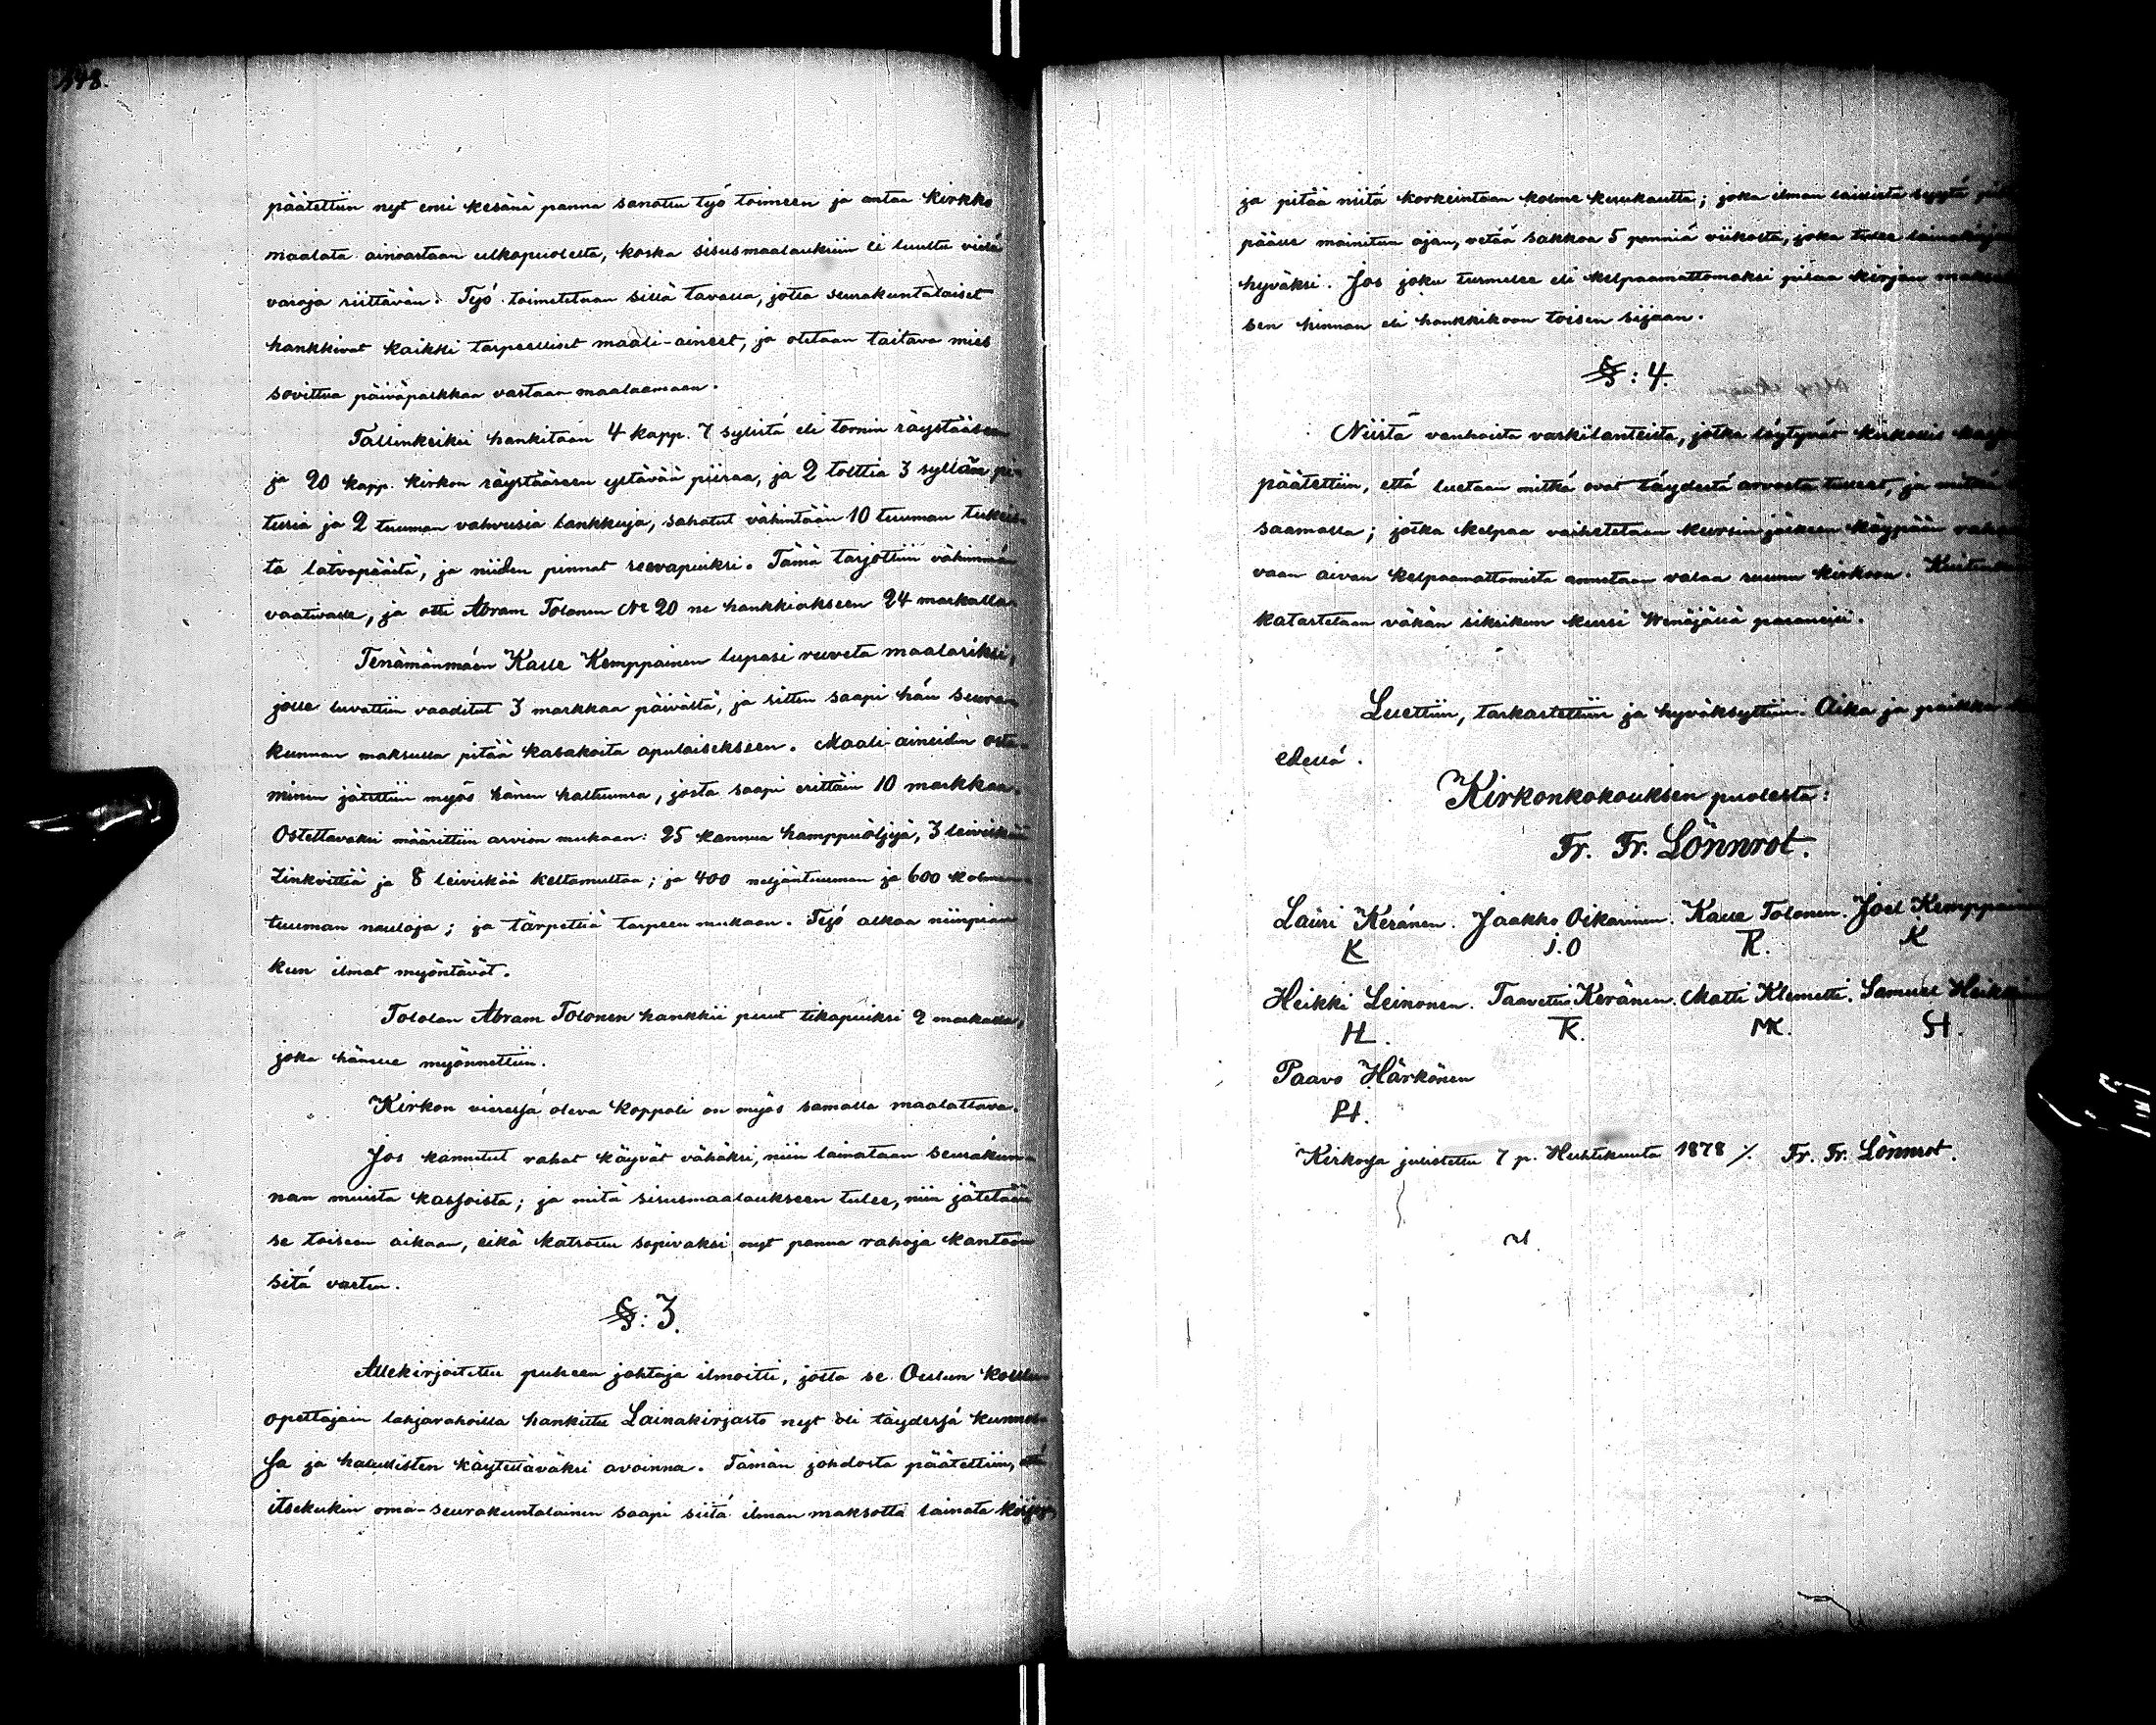 148.
päätettiin nyt ensi kesänä panna sanottu työ toimeen ja antaa kirkko
maalata ainoastaan ulkopuolelta, koska sisusmaalauksiin ei luultu vielä
varoja riittävän. Työ toimitetaan sillä tavalla, jotta seurakuntalaiset
hankkivat kaikki tarpeelliset maali-aineet, ja otetaan taitava mies
sovittua päiväpalkkaa vastaan maalaamaan.
Tallinkeiksi hankitaan 4 kapp. 7 sylistä eli tornin räystääseen
ja 20 kapp. kirkon räystääseen ystävää piiraa, ja 2 tolttia 3 syllän pi-
tusia ja 2 tuuman vahvusia lankkuja, sahatut vähintään 10 tuuman tukeis-
ta latvapäästä, ja niiden pinnat reevapuiksi. Tämä tarjottiin vähimmän
vaativalle, ja otti Abram Tolonen No 20 ne hankkiakseen 24 markalla.
Tenämänmäen Kalle Kemppainen lupasi ruveta maalariksi,
jolle luvattiin vaaditut 3 markkaa päivältä, ja sitten saapi hän seura-
kunnan maksulla pitää kasakoita apulaisekseen. Maali-aineiden osta-
minen jätettiin myös hänen haltuunsa, josta saapi erittäin 10 markkaa.
Ostettavaksi määrättiin arvion mukaan: 25 kannua hamppuöljyä, 3 leiviskää
Zinkvittiä ja 8 leiviskää keltamultaa; ja 400 neljäntuuman ja 600 kolmen-
tuuman nauloja; ja tärpettiä tarpeen mukaan. Työ alkaa niinpian
kun ilmat myöntävät.
Tololan Abram Tolonen hankkii puut tikapuiksi 2 markalla,
joka hänelle myönnettiin.
Kirkon vieressä oleva koppeli on myös samalla maalattava.
Jos kannetut rahat käyvät vähäksi, niin lainataan seurakun-
nan muista kassoista; ja mitä sisusmaalaukseen tulee, niin jätetään
se toiseen aikaan, eikä katsottu sopivaksi nyt panna rahoja kantoon
sitä varten.
§: 3.
Allekirjoitettu puheen johtaja ilmoitti, jotta se Oulun koulu-
opettajain lahjarahoilla hankittu Lainakirjasto nyt oli täydessä kunnos-
sa ja halullisten käytettäväksi avoinna. Tämän johdosta päätettiin, että
itsekukin oma-seurakuntalainen saapi siitä ilman maksotta lainata kirjoja,
ja pitää niitä korkeintaan kolme kuukautta; joka ilman laillista syytä
päälle mainitun ajan, vetää sakkoa 5 penniä viikolta, joka tulee lainakirjaston
hyväksi. Jos joku turmelee eli kelpaamattomaksi pilaa kirjan maksakoon
sen hinnan eli hankkikoon toisen sijaan.
§: 4.
Niistä vanhoista vaskilanteista, jotka löytyvät kirkollis
päätettiin, että luetaan mitkä ovat täydestä arvosta tulleet, ja mitkä
saamalla; jotka kelpaa vaihetetaan kurssin jälkeen käypään rahaan
vaan aivan kelpaamattomista annetaan valaa ruunu kirkoon. Kuitenkin
katastelaan vähän siksikun kurssi Wenäjällä paranisi.
Luettiin, tarkastettiin ja hyväksyttiin. Aika ja paikka
edellä.
Kirkonkokouksen puolesta:
Fr. Fr. Lönnrot.
Lauri Keränen. Jaakko Oikarinen. Kalle Tolonen. Joel Kemppainen
K J.O K. K
Heikki Leinonen. Taavetti Keränen. Matti Klemetti. Samuel Heikkinen
HL. TK. MK. SH.
Paavo Härkönen
PH.
Kirkossa julistettu 7 p. Huhtikuuta 1878 /. Fr. Fr. Lönnrot.